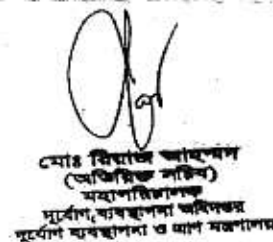 মোঃ রিয়াজ আহম্মদ
(অতিরিক্ত সচিব)
মহাপরিচালক
দুর্যোগ ব্যবস্থাপনা অধিদপ্তর
দুর্যোগ ব্যবস্থাপনা ও ত্রাণ মন্ত্রণালয়